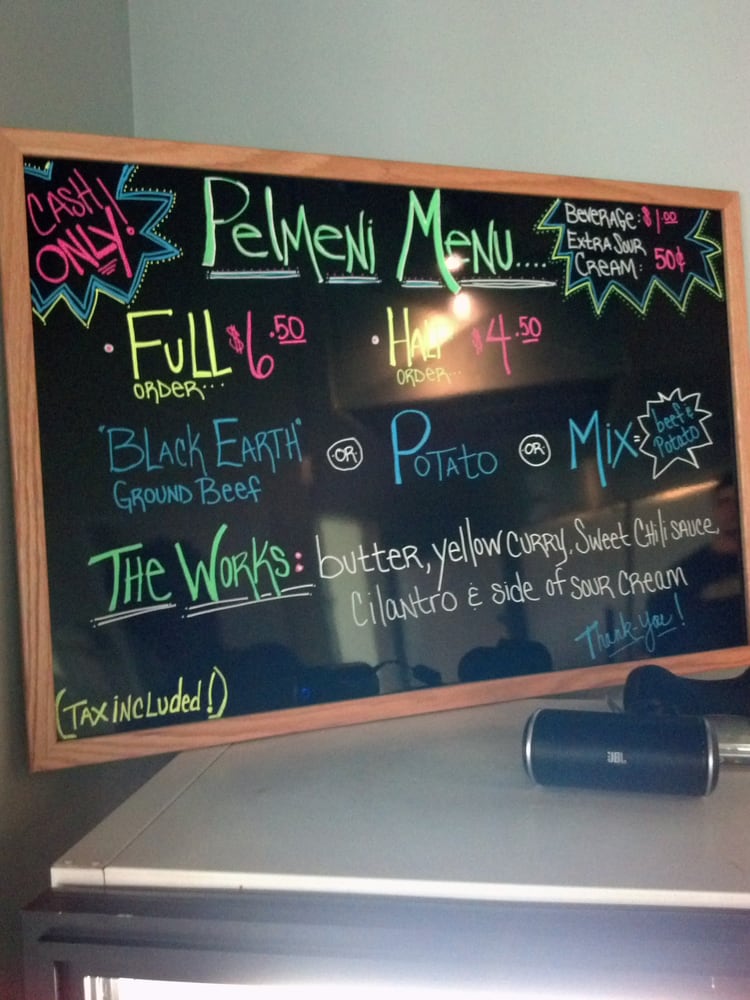 CASH ONLY!
PelMeni Menu....
Beverage: $1.00
Extra Sour Cream: 50¢
• Full order... $6.50
• Half order... $4.50
"Black Earth" Ground Beef
OR
Potato
OR
Mix = beef & Potato
The Works: butter, yellow curry, Sweet Chili sauce,
Cilantro & side of sour cream
Thank-You!
(Tax included!)
JBL